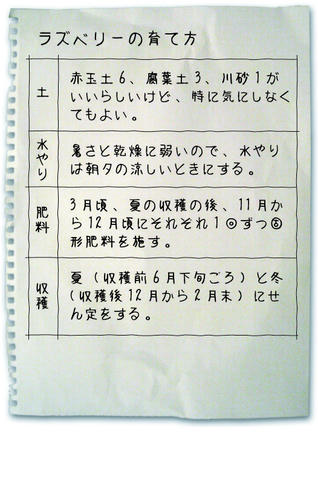 ラズベリーの育て方
土
赤玉土6、腐葉土3、川砂1が
いいらしいけど、特に気にしなく
てもよい。
水やり
暑さと乾燥に弱いので、水やり
は朝夕の涼しいときにする。
肥料
3月頃、夏の収穫の後、11月か
ら12月頃にそれぞれ1回ずつ固
形肥料を施す。
収穫
夏(収穫前6月下旬ごろ)と冬
(収穫後12月から2月末)にせ
ん定をする。